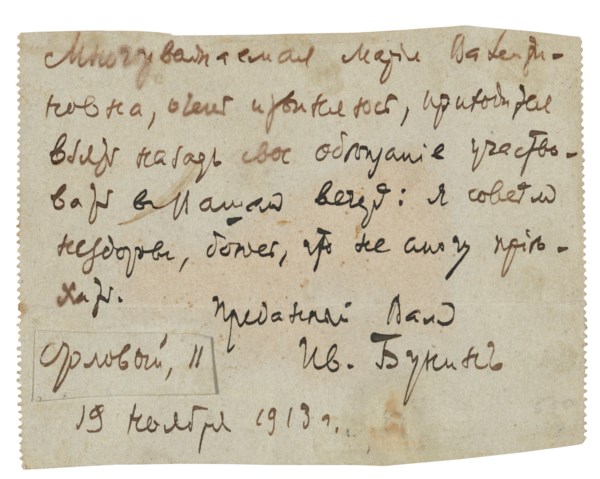 Многоуважаемая Марiя Валенти-
новна, очень извиняюсь, приходится
взять назадъ свое обѣщанiе участво-
вать в Вашем вечерѣ: я совсѣмъ
нездоровъ, боюсь, что не могу прiѣ-
хать.
Преданный Вамъ
Ив. Бунинъ
Столовый, 11
19 ноября 1913 г.